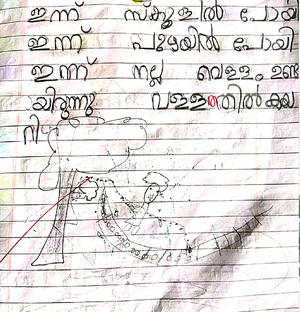 ഇന്ന് സ്കൂളിൽ പോയി
ഇന്ന് പുഴയിൽ പോയി
ഇന്ന് നല്ല വെള്ളം ഉണ്ട
യിരുന്നു വള്ളത്തിൽ കയ